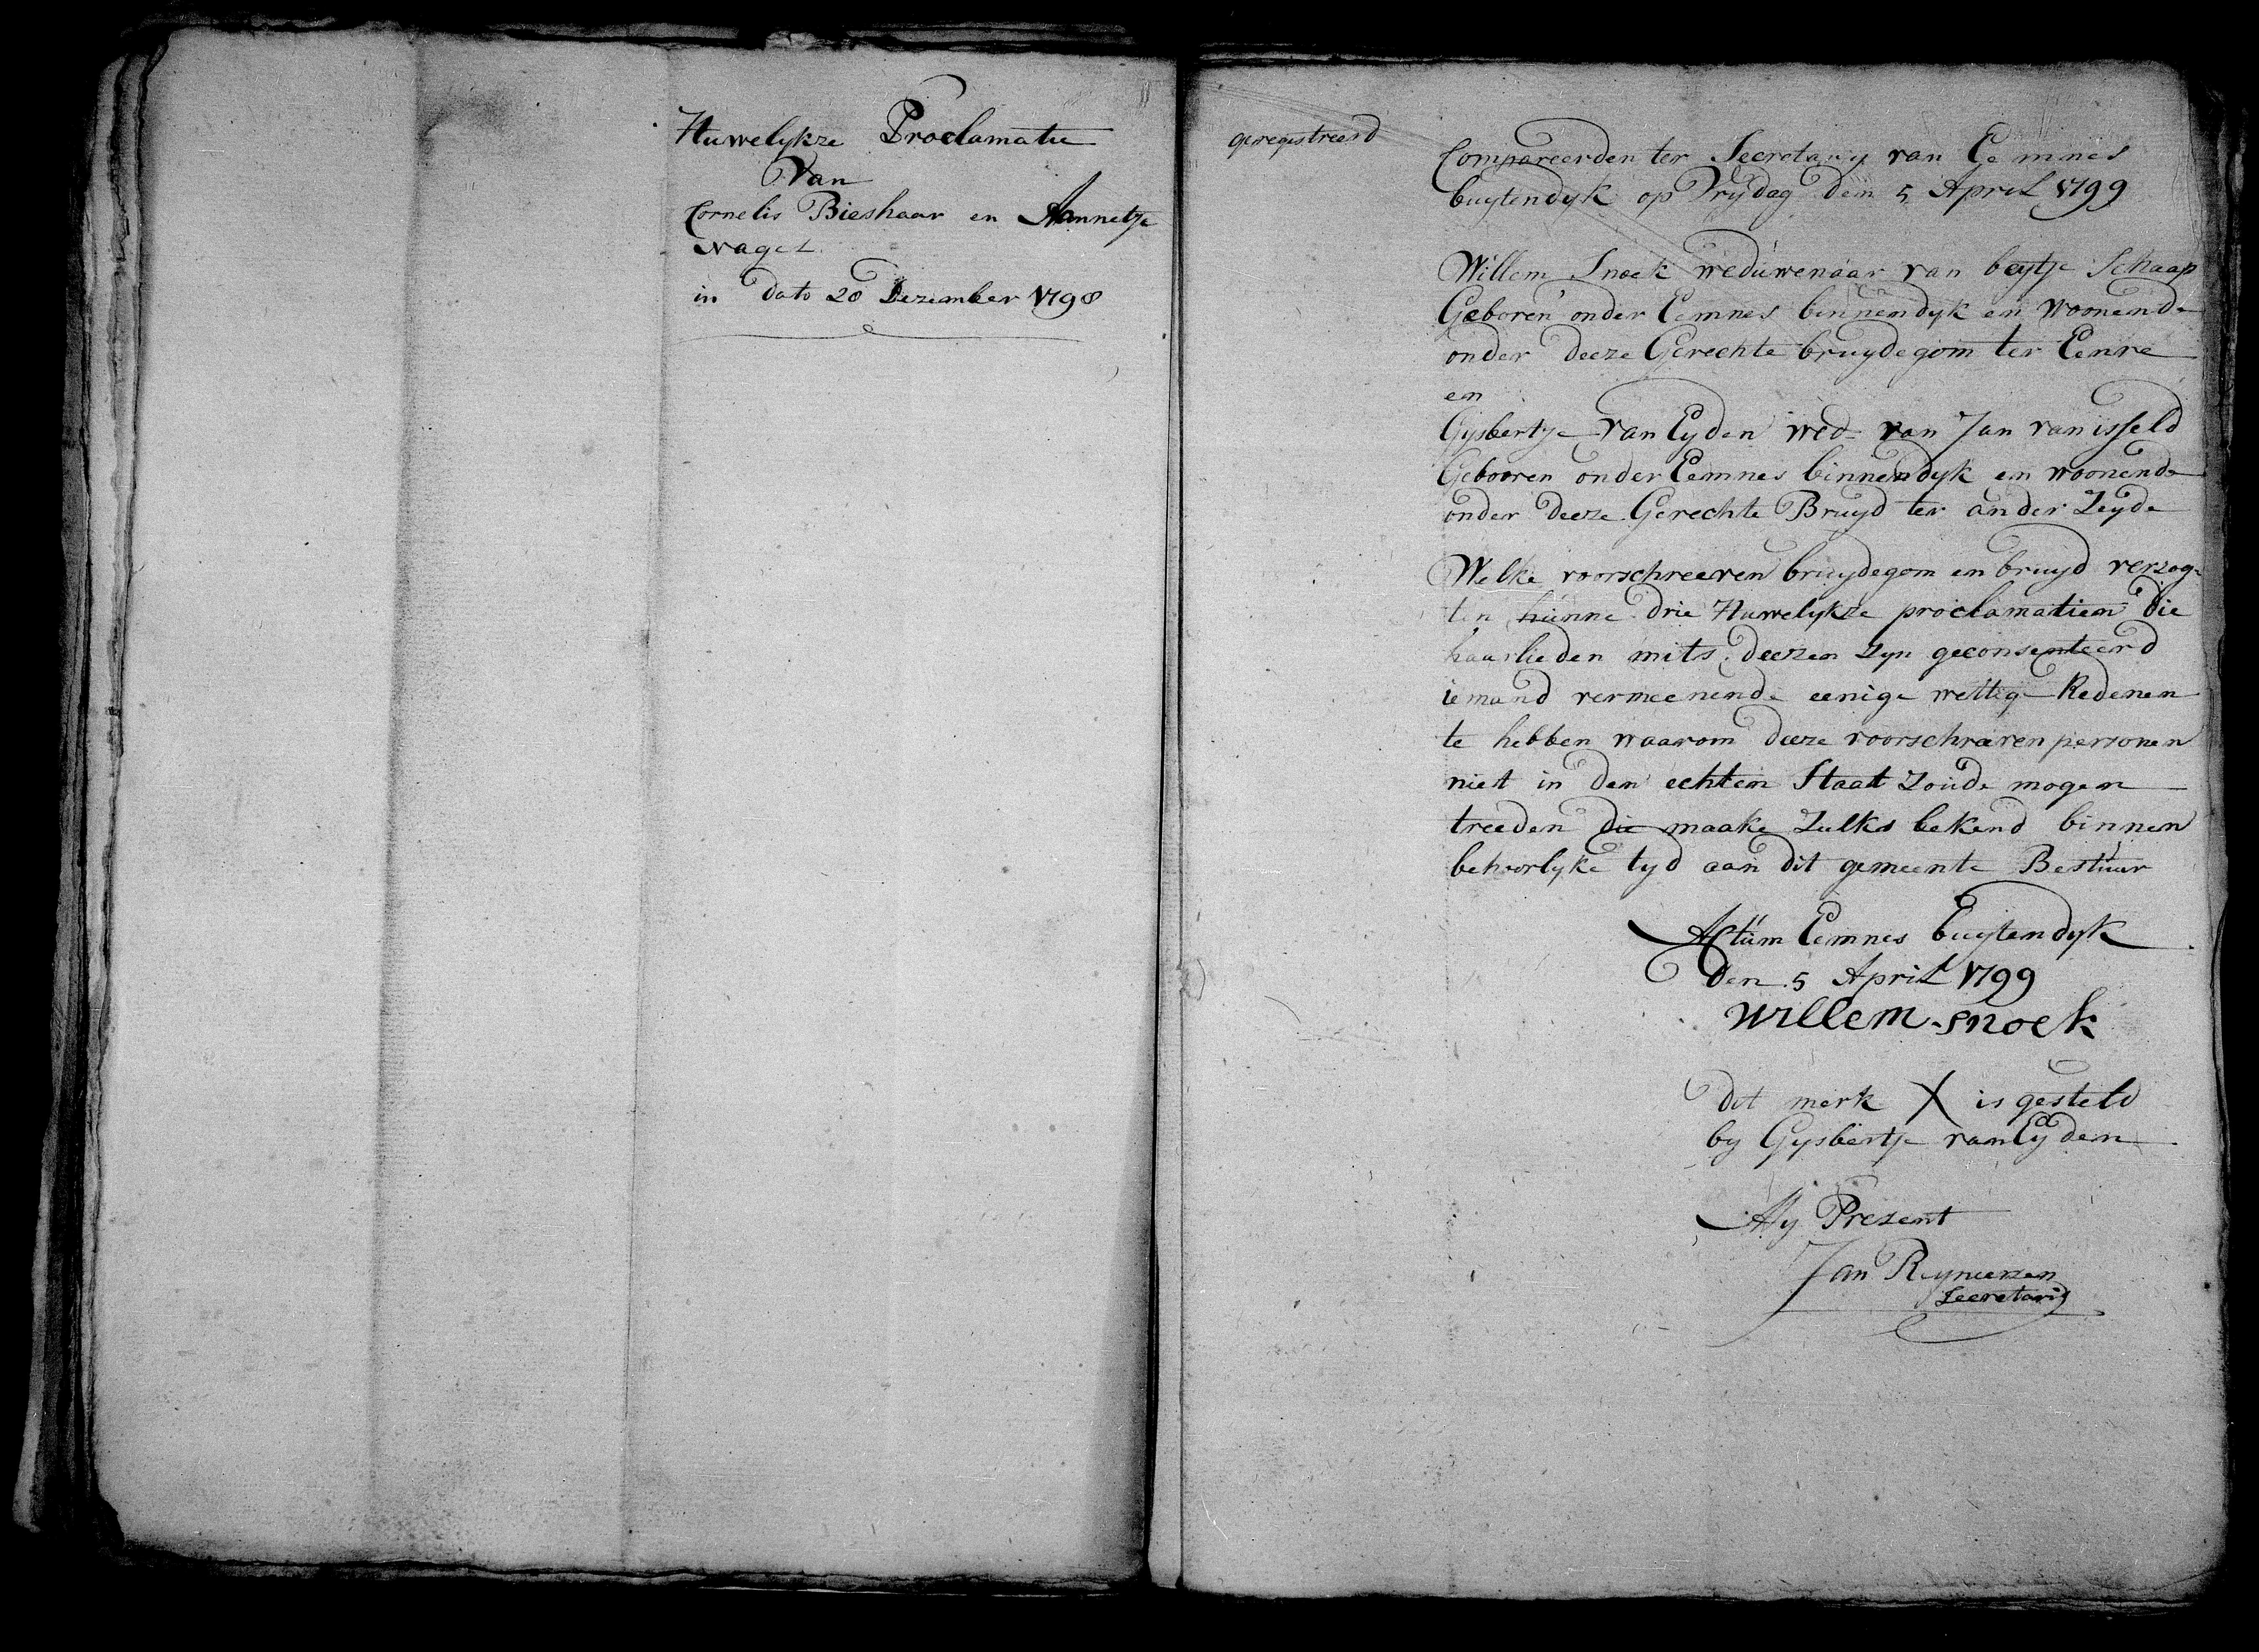 Huwelykze Proclamatie
Van
Cornelis Bieshaar en Annetje
Nagel
in dato 28 Dezember 1798
geregistreerd
Compareerden ter Secretary van Eemnes
buytendyk op Vrydag den 5 April 1799
Willem Snoek weduwenaar van beytje Schaap
Geboren onder Eemnes binnendyk en Woonende
onder deeze Gerechte bruydegom ter Eenre
en
Gysbertje Van Eyden wed= van Jan van isseld
Gebooren onder Eemnes binnendyk en woonende
onder deeze Gerechte Bruyd ter ander Zeyde
Welke voorschreeven bruydegom en bruyd verzog=
ten hunne drie Huwelykze proclamatien die
haarlieden mits deezen Zyn geconsenteerd
iemand vermeenende eenige wettige Redenen
te hebben waarom deeze voorschreven personen
niet in den echten Staat Zoude mogen
treeden die maake Zulks bekend binnen
behoorlyke tyd aan dit gemeente Bestuur
Actum Eemnes buytendyk
den 5 April 1799
Willem Snoek
dit merk X is gesteld
by Gysbertje van Eyden
My Prezent
Jan Rynierzen
Secretaris